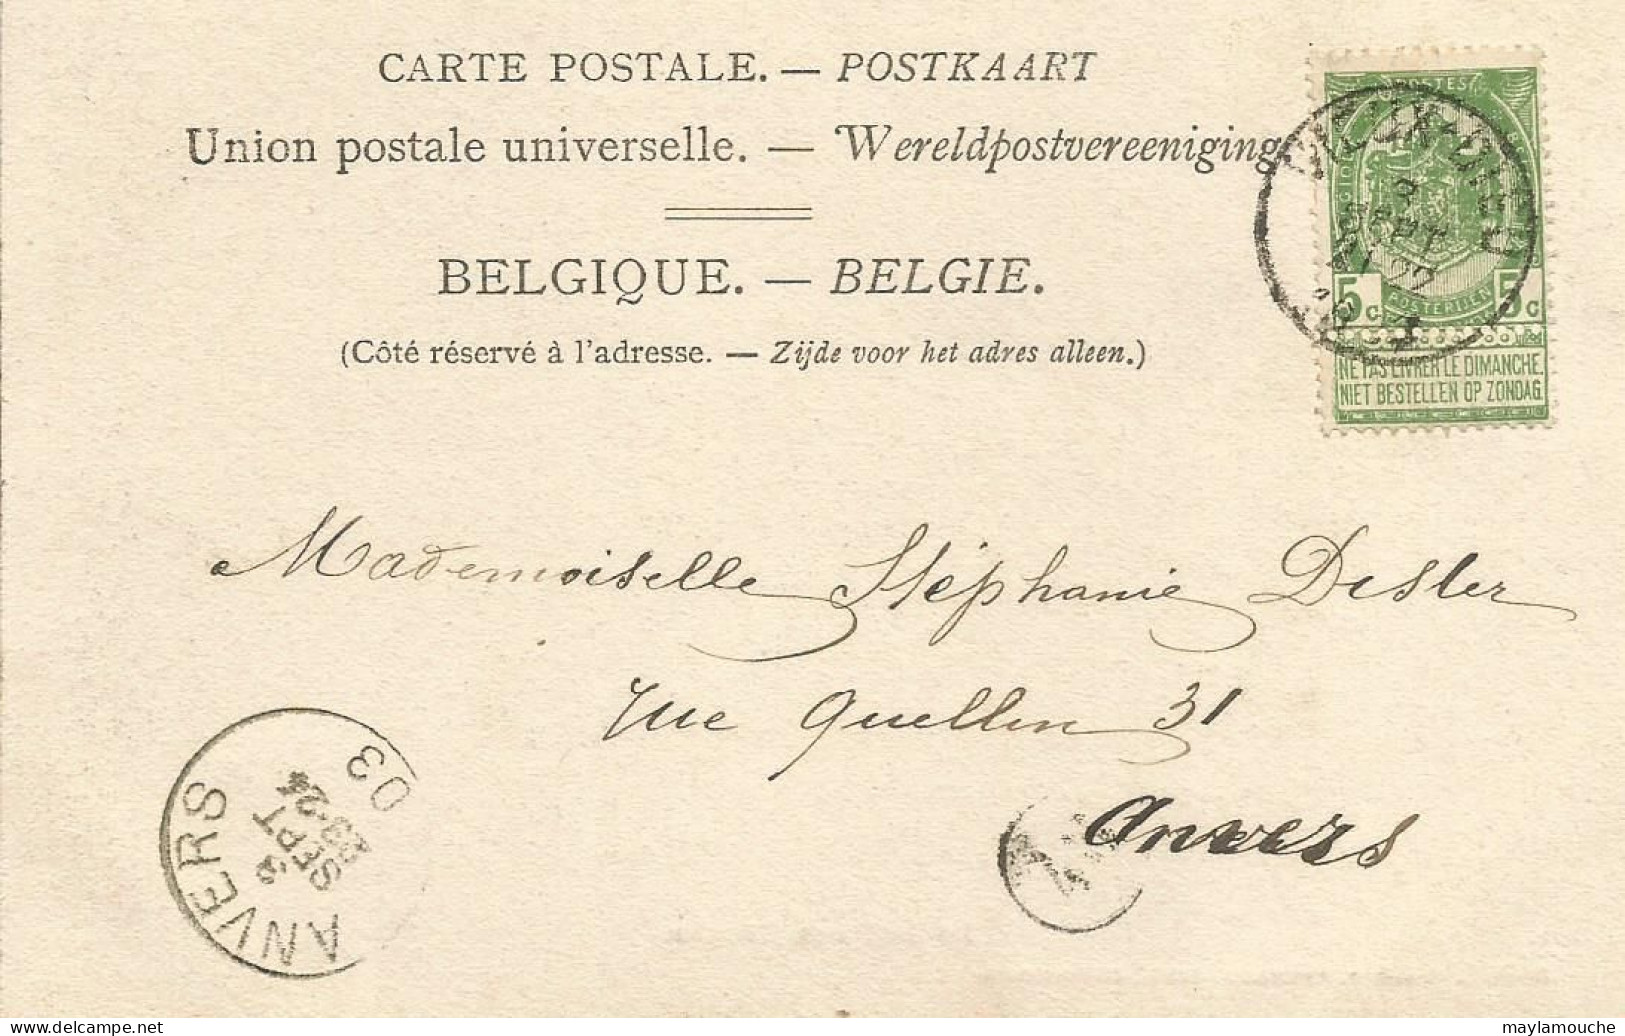 CARTE POSTALE. — POSTKAART
Union postale universelle. — Wereldpostvereeniging
BELGIQUE. — BELGIE.
(Côté réservé à l'adresse. — Zijde voor het adres alleen.)
POSTES
SEPT
5c
POSTERIJEN
5c
NE PAS LIVRER LE DIMANCHE.
NIET BESTELLEN OP ZONDAG.
Mademoiselle Stéphanie Desler
rue Quellin 31
Anvers
ANVERS
SEPT
03
www.delcampe.net
maylamouche